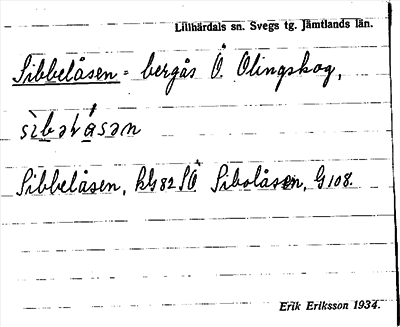 Lillhärdals sn. Svegs tg. Jämtlands län.
Sibbelåsen = bergås Ö. Olingskog,
Sibbelåsen, kbl 82 SO Sibolåsen, G 108.
Erik Eriksson 1934.